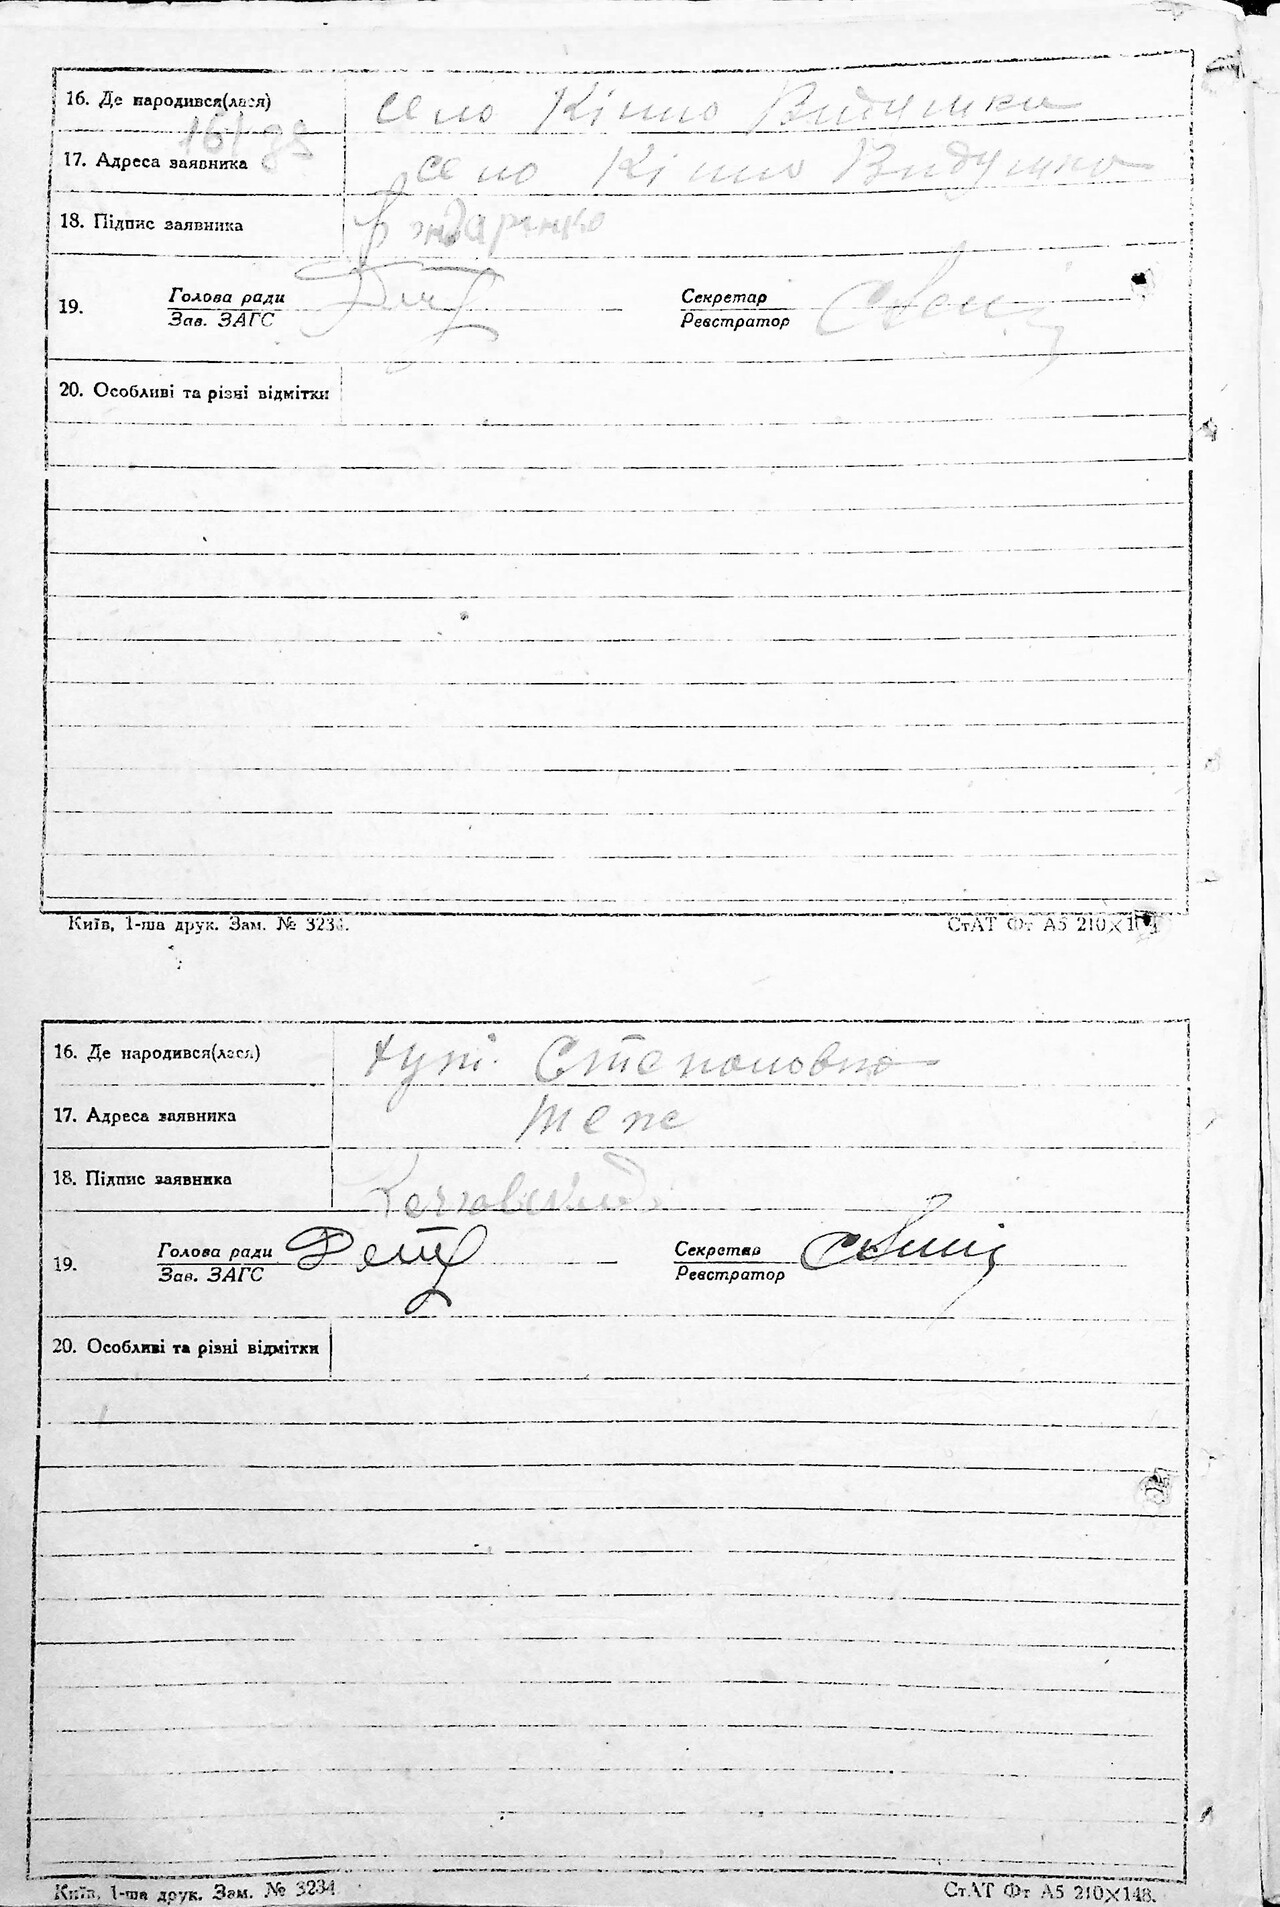 16. Де народився(лася) село Кінно Видумка
161 88
17. Адреса заявника село Кінно Видумка
18. Підпис заявника
19. Голова ради Секретар
Зав. ЗАГС Реєстратор
20. Особливі та різні відмітки
Київ, 1-ша друк. Зам. № 3234. СтАТ Фт А5 210×1
16. Де народився(лася) хут. Степоновка
17. Адреса заявника теж
18. Підпис заявника
19. Голова ради Секретар
Зав. ЗАГС Реєстратор
20. Особливі та різні відмітки
Київ, 1-ша друк. Зам. № 3234 СтАТ Фт А5 210×148.